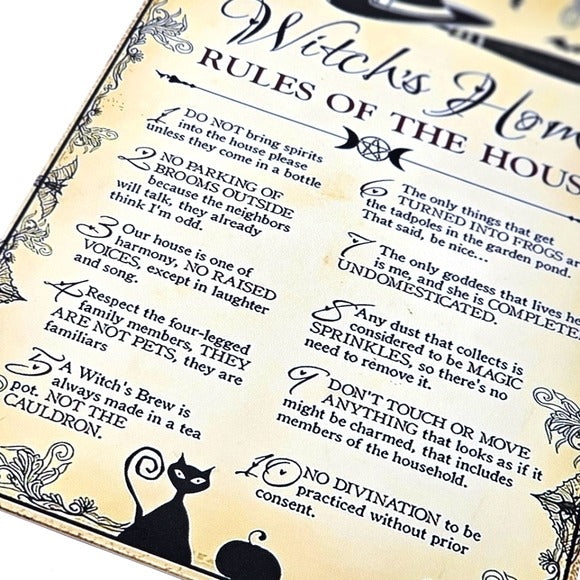 Witch's Home
RULES OF THE HOUSE
1 DO NOT bring spirits
into the house please
unless they come in a bottle
2 NO PARKING OF
BROOMS OUTSIDE
because the neighbors
will talk, they already
think I'm odd.
3 Our house is one of
harmony, NO RAISED
VOICES, except in laughter
and song.
4 Respect the four-legged
family members, THEY
ARE NOT PETS, they are
familiars
5 A Witch's Brew is
always made in a tea
pot. NOT THE
CAULDRON.
6 The only things that get
TURNED INTO FROGS ar
the tadpoles in the garden pond.
That said, be nice...
7 The only goddess that lives he
is me, and she is COMPLETE
UNDOMESTICATED.
8 Any dust that collects is
considered to be MAGIC
SPRINKLES, so there's no
need to remove it.
9 DON'T TOUCH OR MOVE
ANYTHING that looks as if it
might be charmed, that includes
members of the household.
10 NO DIVINATION to be
practiced without prior
consent.